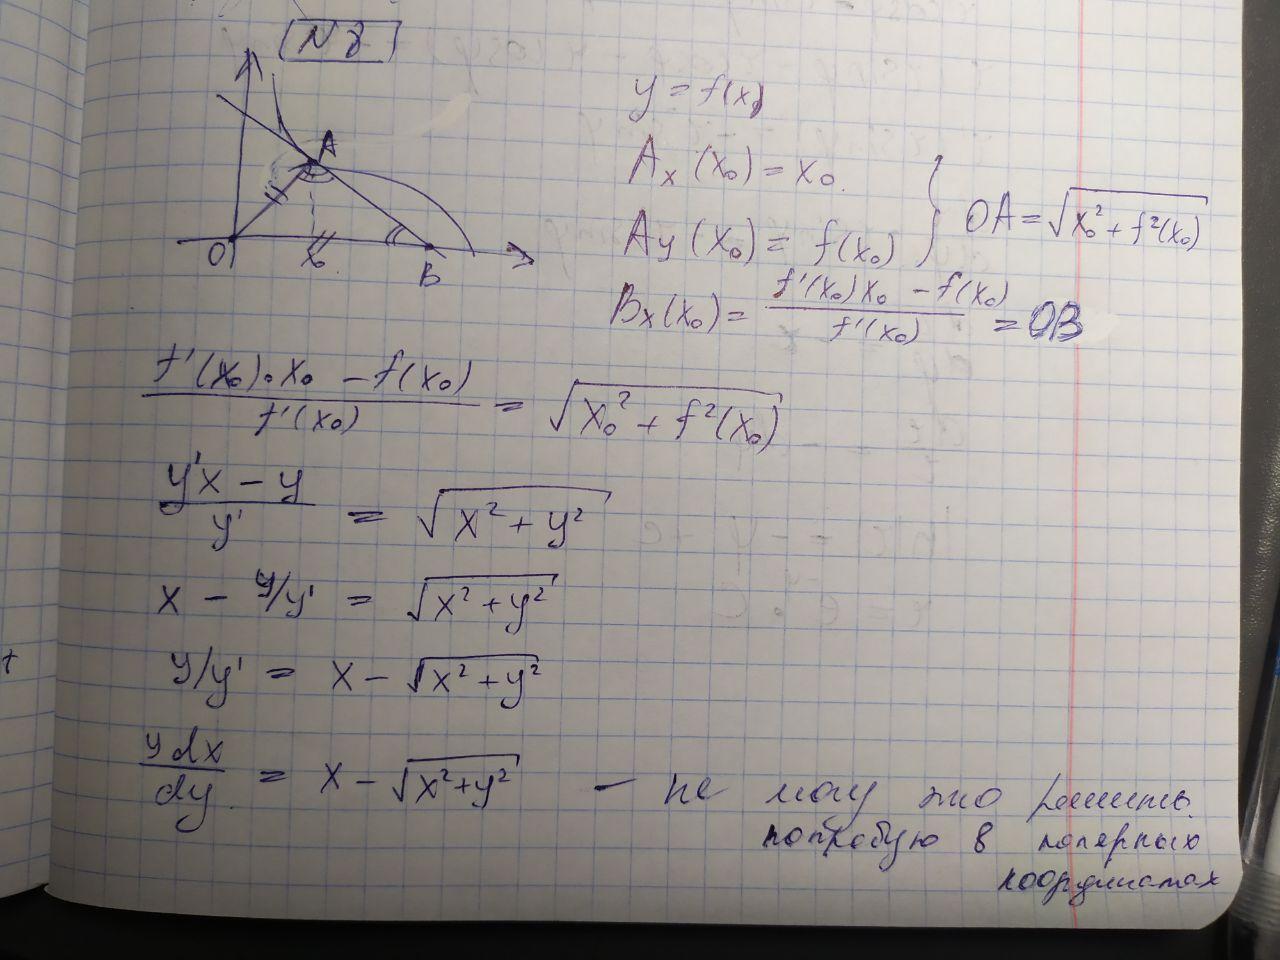 N8
y = f(x)
A
O
x₀
B
Aₓ(x₀) = x₀.
A_y(x₀) = f(x₀)
} OA = √(x₀² + f²(x₀))
Bₓ(x₀) = (f'(x₀)x₀ - f(x₀)) / f'(x₀) = OB
(f'(x₀)·x₀ - f(x₀)) / f'(x₀) = √(x₀² + f²(x₀))
(y'x - y) / y' = √(x² + y²)
x - y/y' = √(x² + y²)
y/y' = x - √(x² + y²)
y dx / dy = x - √(x² + y²) — не могу это решить.
попробую в полярных
координатах